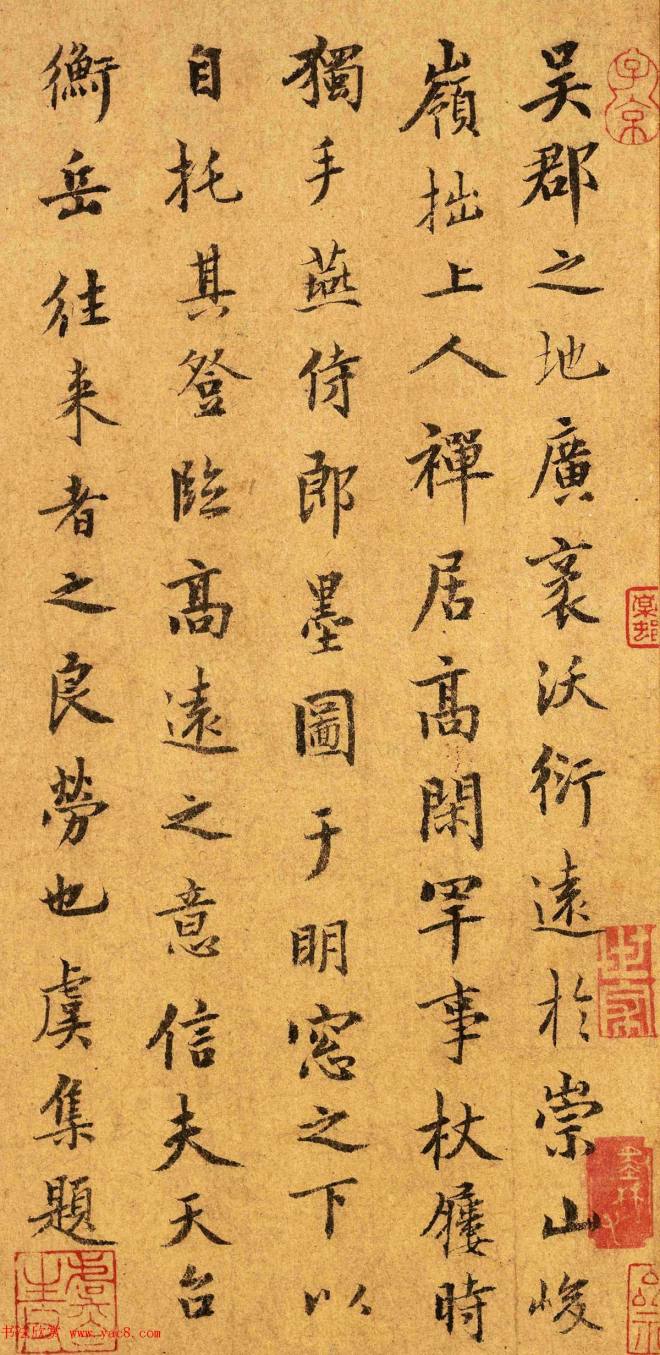 吳郡之地廣袤沃衍遠於崇山峻
嶺拙上人禪居高閑罕事杖屨時
獨手燕侍郎墨圖于明窓之下以
自托其登臨高遠之意信夫天台
衡岳往来者之良勞也虞集題
子京
书法欣赏 www.yac8.com